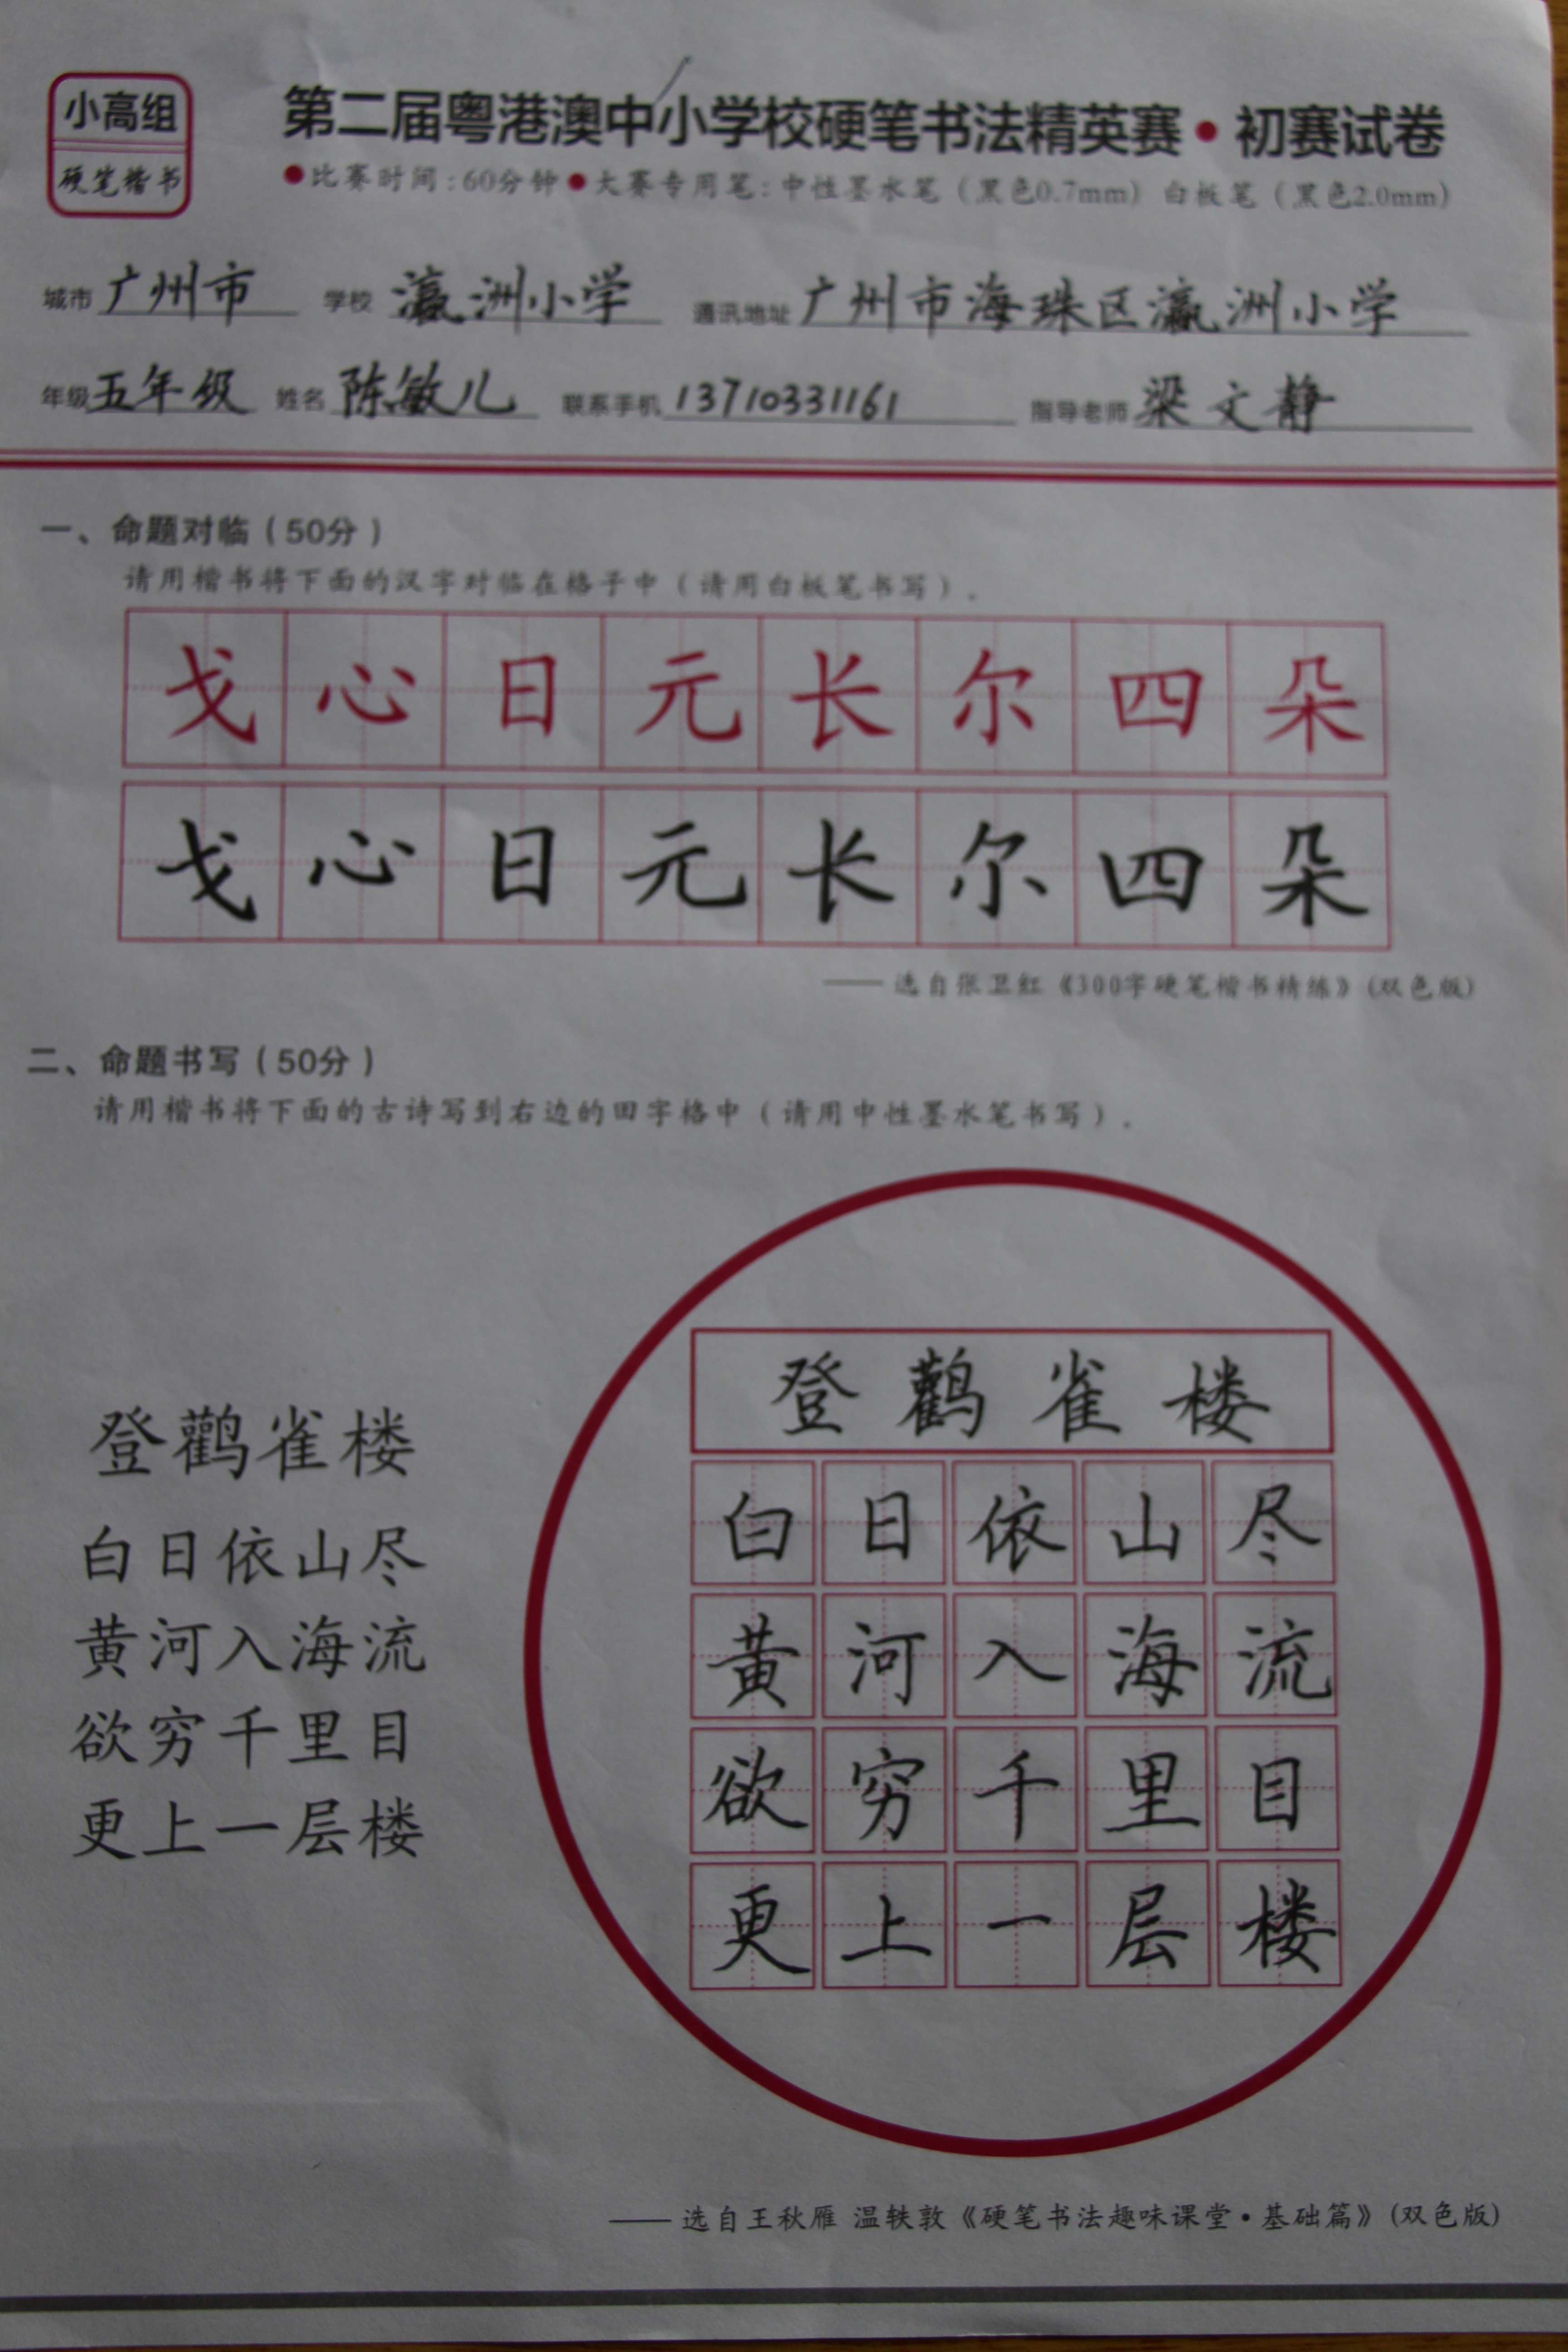 小高组
硬笔楷书
第二届粤港澳中小学校硬笔书法精英赛·初赛试卷
●比赛时间:60分钟●大赛专用笔:中性墨水笔(黑色0.7mm) 白板笔(黑色2.0mm)
城市 广州市 学校 瀛洲小学 通讯地址 广州市海珠区瀛洲小学
年级 五年级 姓名 陈敏儿 联系手机 13710331161 指导老师 梁文静
一、命题对临(50分)
请用楷书将下面的汉字对临在格子中(请用白板笔书写)。
戈心日元长尔四朵
戈心日元长尔四朵
——选自张卫红《300字硬笔楷书精练》(双色版)
二、命题书写(50分)
请用楷书将下面的古诗写到右边的田字格中(请用中性墨水笔书写)。
登鹳雀楼
白日依山尽
黄河入海流
欲穷千里目
更上一层楼
登鹳雀楼
白日依山尽
黄河入海流
欲穷千里目
更上一层楼
——选自王秋雁 温轶敦《硬笔书法趣味课堂·基础篇》(双色版)